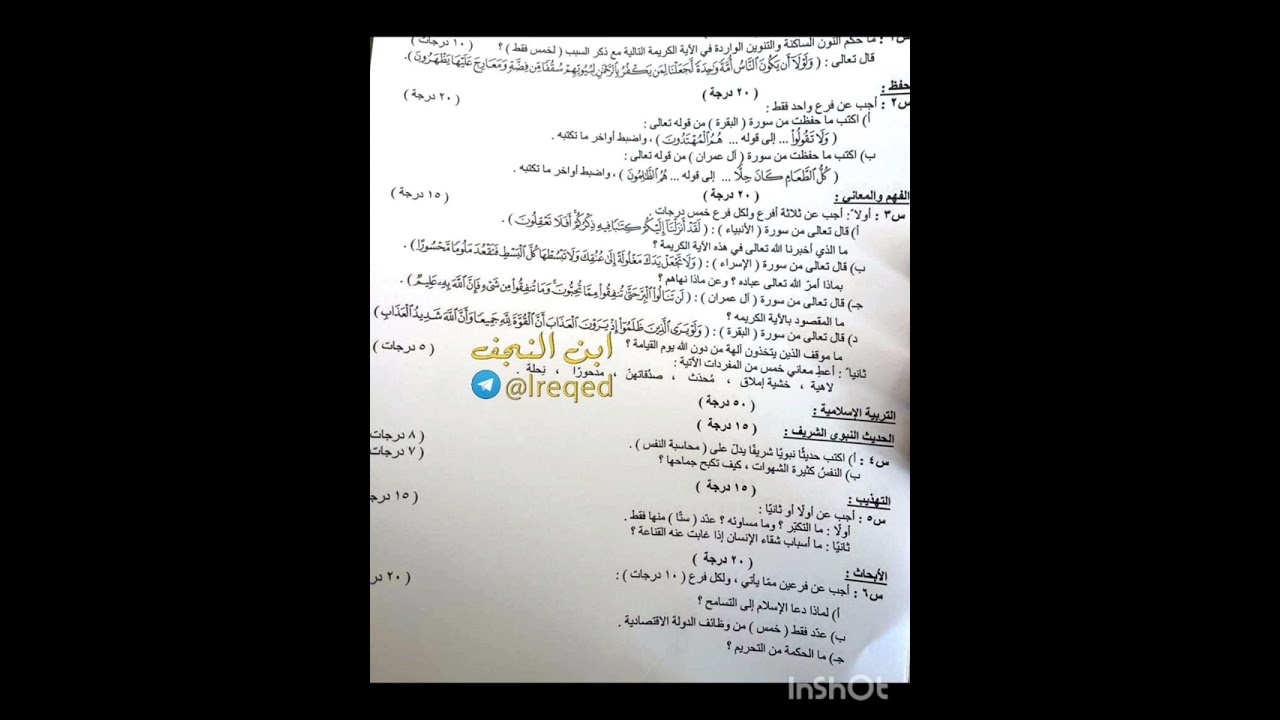 س١ : ما حكم النون الساكنة والتنوين الواردة في الآية الكريمة التالية مع ذكر السبب ( لخمس فقط ) ؟ ( ١٠ درجات )
قال تعالى : ( وَلَوْلَا أَن يَكُونَ النَّاسُ أُمَّةً وَاحِدَةً لَّجَعَلْنَا لِمَن يَكْفُرُ بِالرَّحْمَٰنِ لِبُيُوتِهِمْ سُقُفًا مِّن فِضَّةٍ وَمَعَارِجَ عَلَيْهَا يَظْهَرُونَ ).
حفظ : ( ٢٠ درجة )
س٢ : أجب عن فرع واحد فقط : ( ٢٠ درجة )
أ) اكتب ما حفظت من سورة ( البقرة ) من قوله تعالى :
( وَلَا تَقُولُوا ... إلى قوله ... هُمُ الْمُهْتَدُونَ ) ، واضبط أواخر ما تكتبه .
ب) اكتب ما حفظت من سورة ( آل عمران ) من قوله تعالى :
( كُلُّ الطَّعَامِ كَانَ حِلًّا ... إلى قوله ... هُمُ الظَّالِمُونَ ) ، واضبط أواخر ما تكتبه .
الفهم والمعاني : ( ٢٠ درجة )
س٣ : أولاً : أجب عن ثلاثة أفرع ولكل فرع خمس درجات . ( ١٥ درجة )
أ) قال تعالى من سورة ( الأنبياء ) : ( لَقَدْ أَنزَلْنَا إِلَيْكُمْ كِتَابًا فِيهِ ذِكْرُكُمْ أَفَلَا تَعْقِلُونَ ) .
ما الذي أخبرنا الله تعالى في هذه الآية الكريمة ؟
ب) قال تعالى من سورة ( الإسراء ) : ( وَلَا تَجْعَلْ يَدَكَ مَغْلُولَةً إِلَىٰ عُنُقِكَ وَلَا تَبْسُطْهَا كُلَّ الْبَسْطِ فَتَقْعُدَ مَلُومًا مَّحْسُورًا ) .
بماذا أمرَ الله تعالى عباده ؟ وعن ماذا نهاهم ؟
جـ) قال تعالى من سورة ( آل عمران ) : ( لَن تَنَالُوا الْبِرَّ حَتَّىٰ تُنفِقُوا مِمَّا تُحِبُّونَ وَمَا تُنفِقُوا مِن شَيْءٍ فَإِنَّ اللَّهَ بِهِ عَلِيمٌ ) .
ما المقصود بالآية الكريمه ؟
د) قال تعالى من سورة ( البقرة ) : ( وَلَوْ يَرَى الَّذِينَ ظَلَمُوا إِذْ يَرَوْنَ الْعَذَابَ أَنَّ الْقُوَّةَ لِلَّهِ جَمِيعًا وَأَنَّ اللَّهَ شَدِيدُ الْعَذَابِ )
ما موقف الذين يتخذون آلهة من دون الله يوم القيامة ؟
ابن النجف
ثانياً : أعطِ معاني خمس من المفردات الآتية : ( ٥ درجات )
لاهية ، خشية إملاق ، مُحدَث ، صدُقاتهنّ ، مدحورًا ، نِحلة .
@lreqed
التربية الإسلامية : ( ٥٠ درجة )
الحديث النبوي الشريف : ( ١٥ درجة )
س٤ : أ) اكتب حديثًا نبويًا شريفًا يدلّ على ( محاسبة النفس ) . ( ٨ درجات
ب) النفسُ كثيرة الشهوات ، كيف تكبح جماحها ؟ ( ٧ درجات
التهذيب : ( ١٥ درجة )
س٥ : أجب عن أولًا أو ثانيًا : ( ١٥ درجـ
أولًا : ما التكبّر ؟ وما مساوئه ؟ عدّد ( ستًّا ) منها فقط .
ثانيًا : ما أسباب شقاء الإنسان إذا غابت عنه القناعة ؟
الأبحاث : ( ٢٠ درجة )
س٦ : أجب عن فرعين ممّا يأتي ، ولكل فرع ( ١٠ درجات ) : ( ٢٠ در
أ) لماذا دعا الإسلام إلى التسامح ؟
ب) عدّد فقط ( خمس ) من وظائف الدولة الاقتصادية .
جـ) ما الحكمة من التحريم ؟
InShOt